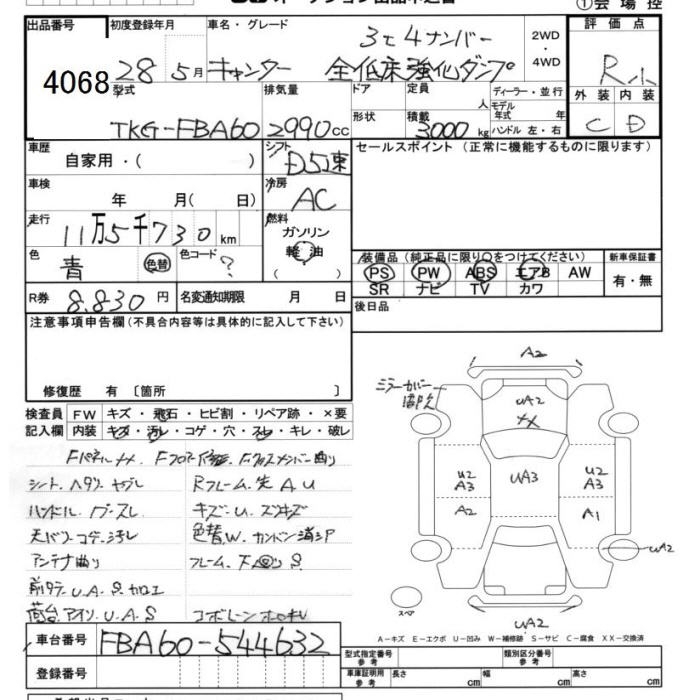 ① 会 場 控
出品番号 初度登録年月 車名・グレード 2WD・4WD 評 価 点
4068 28 5月 キャンター 3t 4ナンバー
全低床強化ダンプ
R小
型式 TKG-FBA60 排気量 2990cc ドア 形状 定員 人 積載 3000kg
ディーラー・並行 モデル年式 年 ハンドル 左・右
外 装 内 装
C D
車歴 自家用・( ) シフト D5速
セールスポイント(正常に機能するものに限ります)
車検 年 月( 日) 冷房 AC
走行 11万5千730km 燃料 ガソリン 軽油 ( )
色 青 色替 色コード ?
装備品(純正品に限り○をつけてください) 新車保証書
PS PW ABS エアB AW 有・無
SR ナビ TV カワ
R券 8,830円 名変通知期限 月 日 後日品
注意事項申告欄(不具合内容等は具体的に記入して下さい)
修復歴 有〔箇所 〕
検査員 FW キズ・飛石・ヒビ割・リペア跡・×要
記入欄 内装 キズ・汚レ・コゲ・穴・スレ・キレ・破レ
シート、ヘタリ ヤブレ Rフレーム先 A U
ハンドル キズ・U.
天バリ コゲ 汚レ 色替W.
アンテナ曲り フレーム
U.A.S. 加工
荷台 アオリ.U.A.S
A2
ミラーカバー
UA2
XX
U2
A3
UA3
U2
A3
A2
A1
UA2
スペア
UA2
A-キズ E-エクボ U-凹み W-補修跡 S-サビ C-腐食 XX-交換済
車台番号 FBA60-544632
登録番号
型式指定番号 参考 類別区分番号 参考
車庫証明用 参考 長さ cm 幅 cm 高さ cm